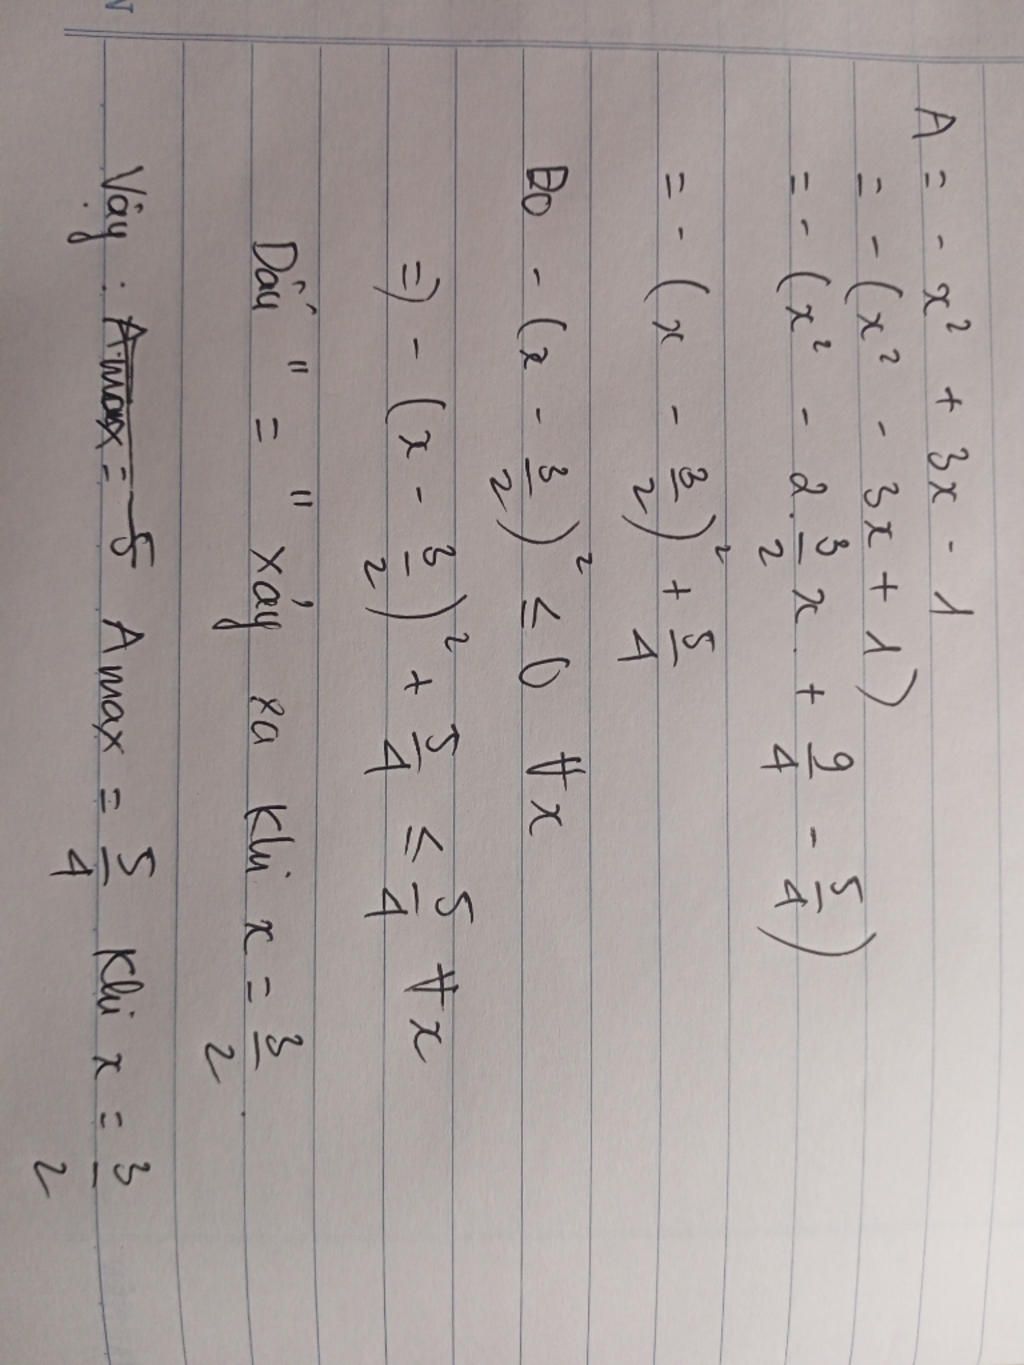 A = - x² + 3x - 1
= - (x² - 3x + 1)
= - (x² - 2. 3/2 x + 9/4 - 5/4)
= - (x - 3/2)² + 5/4
Do - (x - 3/2)² ≤ 0 ∀x
=) - (x - 3/2)² + 5/4 ≤ 5/4 ∀x
Dấu " = " xảy ra khi x = 3/2.
Vậy : A max = 5/4 khi x = 3/2